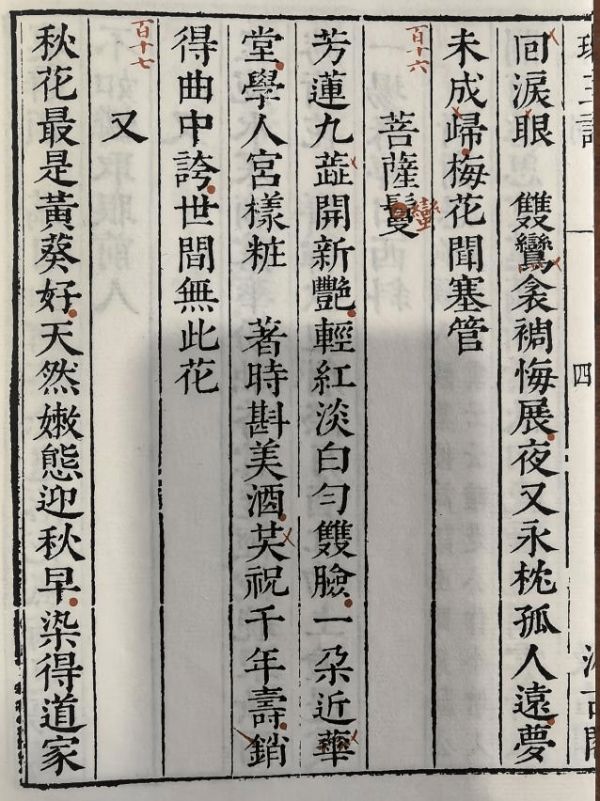 珠玉詞
四
汲古閣
回淚眼　雙鸞衾裯悔展夜又永枕孤人遠夢
未成歸梅花聞塞管
百十六
菩薩鬘
蠻
芳蓮九蘂開新艷輕紅淡白勻雙臉一朵近華
堂學人宮樣粧　著時斟美酒共祝千年壽銷
得曲中誇世間無此花
百十七
又
秋花最是黃葵好天然嫩態迎秋早染得道家